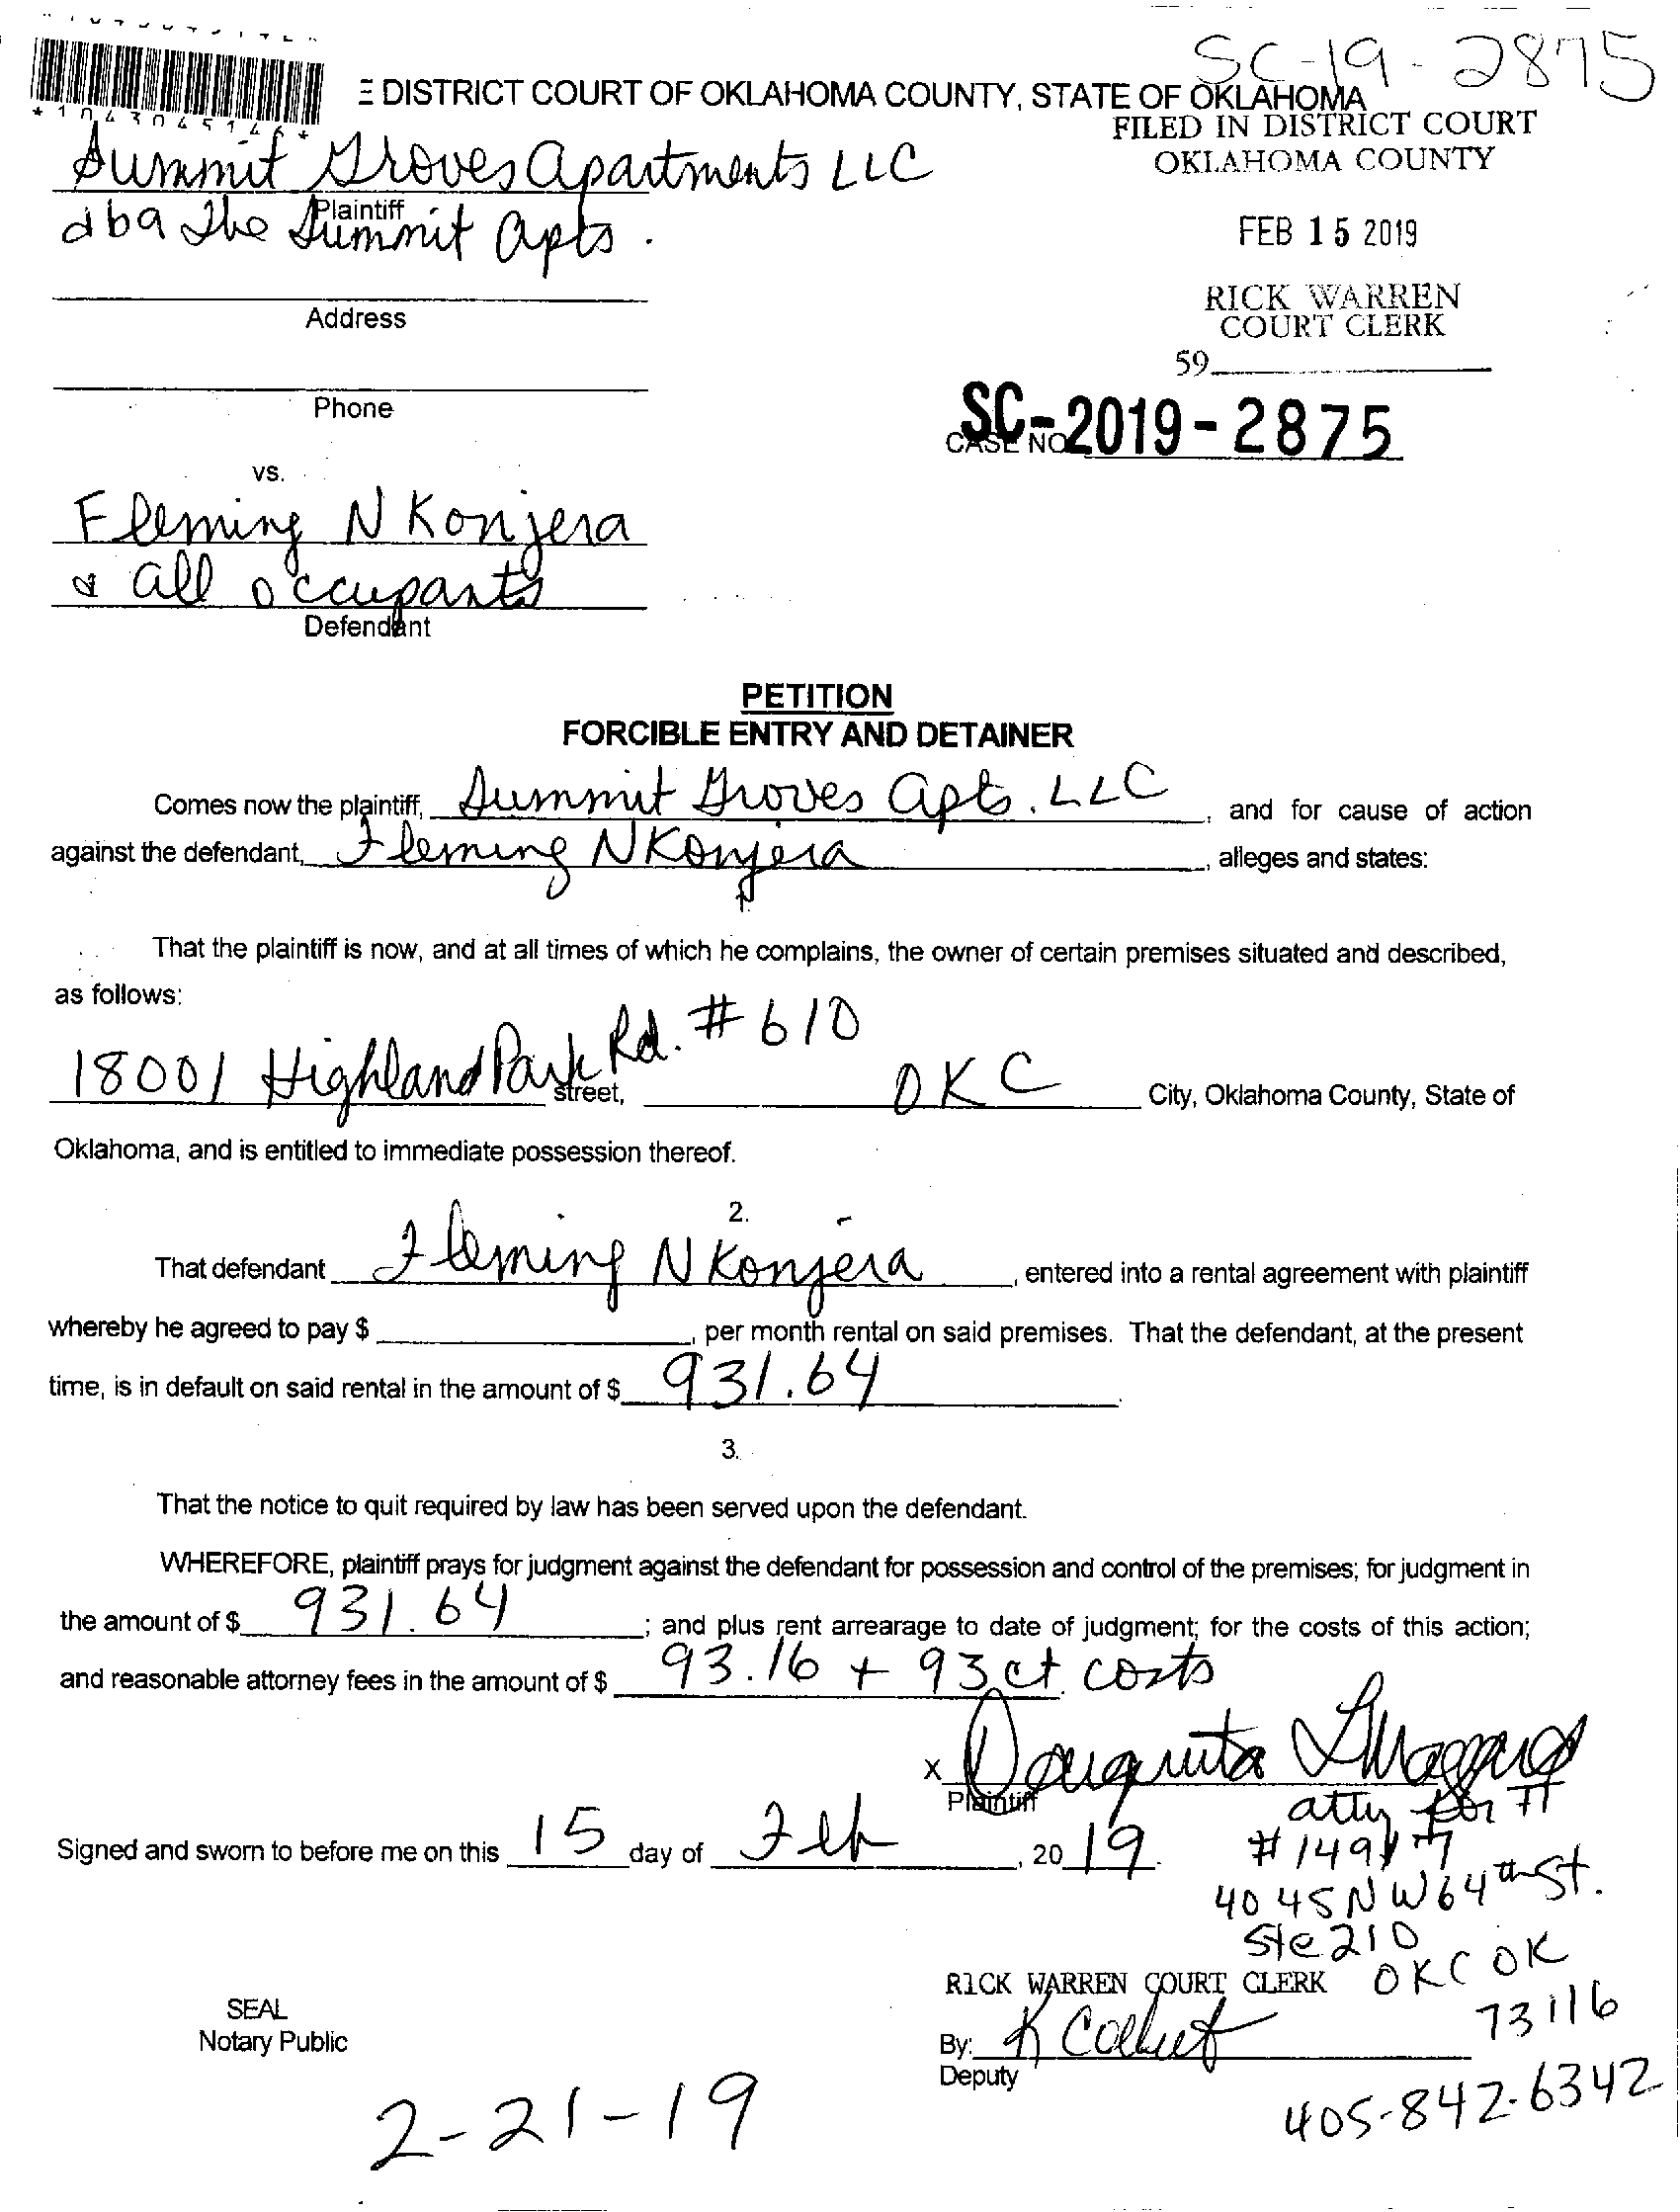 SC-19-2875
E DISTRICT COURT OF OKLAHOMA COUNTY, STATE OF OKLAHOMA
*1043045146*
FILED IN DISTRICT COURT
OKLAHOMA COUNTY
Summit Groves Apartments LLC
Plaintiff
dba The Summit Apts.
FEB 15 2019
Address
RICK WARREN
COURT CLERK
59
Phone
SC-2019-2875
CASE NO.
vs.
Fleming NKonjera
& all occupants
Defendant
PETITION
FORCIBLE ENTRY AND DETAINER
Comes now the plaintiff, Summit Groves Apts. LLC, and for cause of action
against the defendant, Fleming NKonjera, alleges and states:
That the plaintiff is now, and at all times of which he complains, the owner of certain premises situated and described,
as follows:
18001 Highland Park Rd. #610 street, OKC City, Oklahoma County, State of
Oklahoma, and is entitled to immediate possession thereof.
2.
That defendant Fleming NKonjera, entered into a rental agreement with plaintiff
whereby he agreed to pay $, per month rental on said premises. That the defendant, at the present
time, is in default on said rental in the amount of $ 931.64.
3.
That the notice to quit required by law has been served upon the defendant.
WHEREFORE, plaintiff prays for judgment against the defendant for possession and control of the premises; for judgment in
the amount of $ 931.64; and plus rent arrearage to date of judgment; for the costs of this action;
and reasonable attorney fees in the amount of $ 93.16 + 93 ct. costs
x
Plaintiff
atty for π
Signed and sworn to before me on this 15 day of Feb, 2019.
4045 NW 64th St.
Ste 210
OKC OK
73116
RICK WARREN COURT CLERK
SEAL
Notary Public
By: K
Deputy
405-842-6342
2-21-19